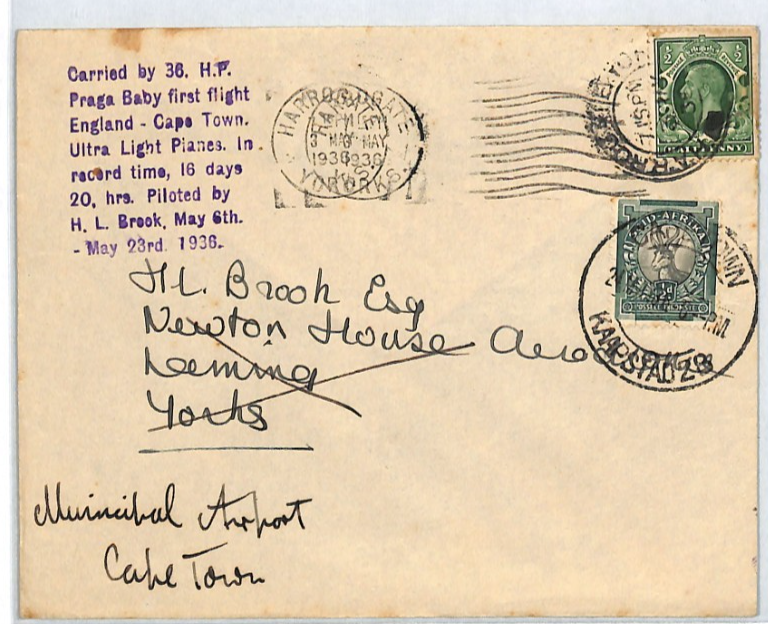 Carried by 36. H.P.
Praga Baby first flight
England - Cape Town.
Ultra Light Planes. In
record time, 16 days
20, hrs. Piloted by
H. L. Brook, May 6th.
- May 23rd. 1936.
HARROGATE
MAY
1936
YORKS
7.15 PM
½ ½
HALFPENNY
SUID-AFRIKA
½d
POSSEEL INKOMSTE
KAAPSTAD
P.M.
H.L. Brook Esq
Newton House Aero
Leeming
Yorks
Municipal Airport
Cape Town